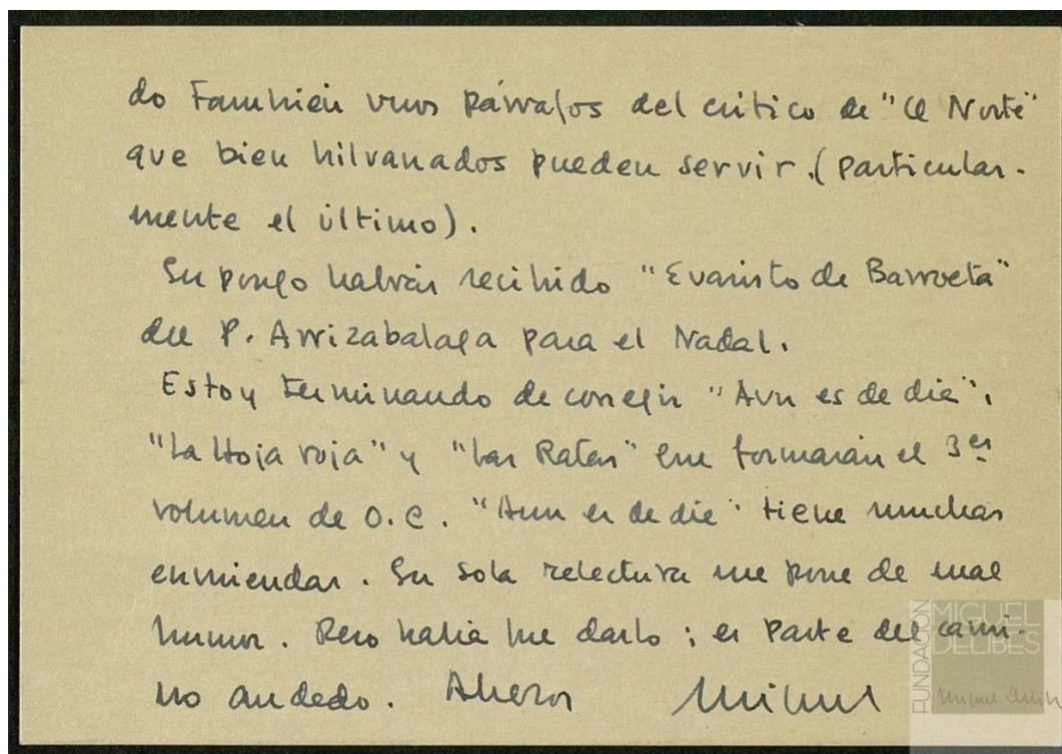 do También unos párrafos del crítico de "El Norte"
que bien hilvanados pueden servir. (particular-
mente el último).
Supongo habréis recibido "Evaristo de Barroeta"
del P. Arrizabalaga para el Nadal.
Estoy terminando de corregir "Aun es de día",
"La Hoja roja" y "Las Ratas" que formarán el 3er
volumen de O.C. "Aun es de día" tiene muchas
enmiendas. Su sola relectura me pone de mal
humor. Pero había que darlo; es parte del cami-
no andado. Abrazos Miguel
FUNDACIÓN
MIGUEL
DELIBES